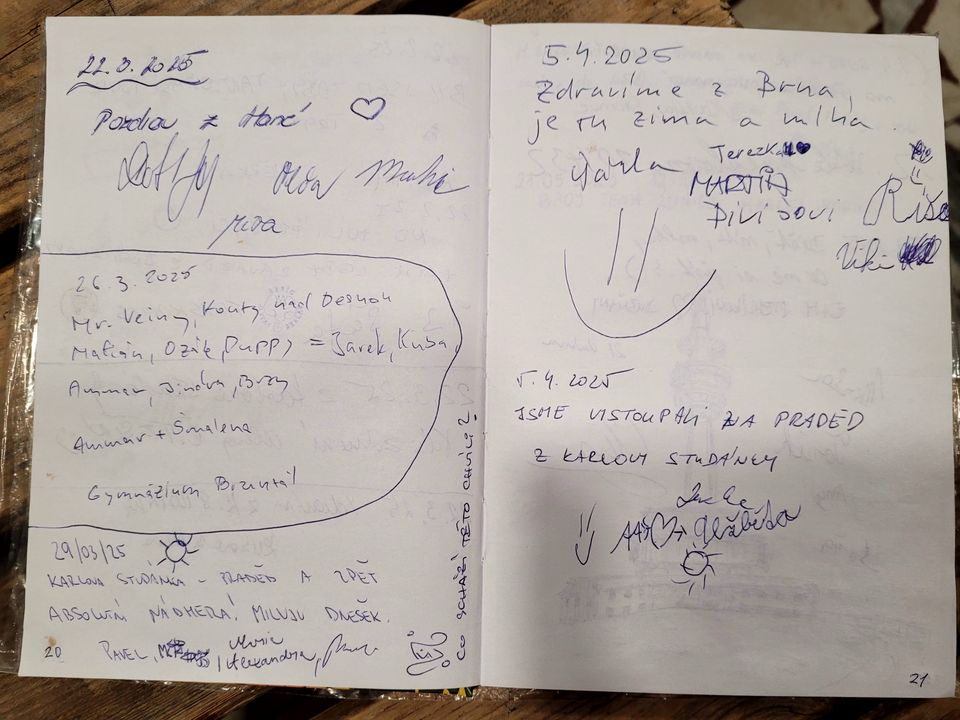 22.3.2025
Pozdrav z Hané
Olda
Míra
26.3.2025
Mr. Veiny, Kouty nad Desnou
Matián, Ozák, Dupp) = Jarek, Kuba,
Ammar, Jindra, Brzy
Ammar + Šmalena
Gymnázium Bruntál
29/03/25
KARLOVA STUDÁNKA - PRADĚD A ZPĚT
ABSOLUTNÍ NÁDHERA! MILUJU DNEŠEK.
PAVEL,
Alexandra,
CO SCHÁZÍ TÉTO CHVÍLI?
20
5.4.2025
Zdravíme z Brna,
je tu zima a mlha.
Terezka
MARTIN
Divišovi
Ríša
Viki
5.4.2025
JSME VISTOUPALI NA PRADED
Z KARLOVY STUDÁNKY
Lucke
Alžběta
21